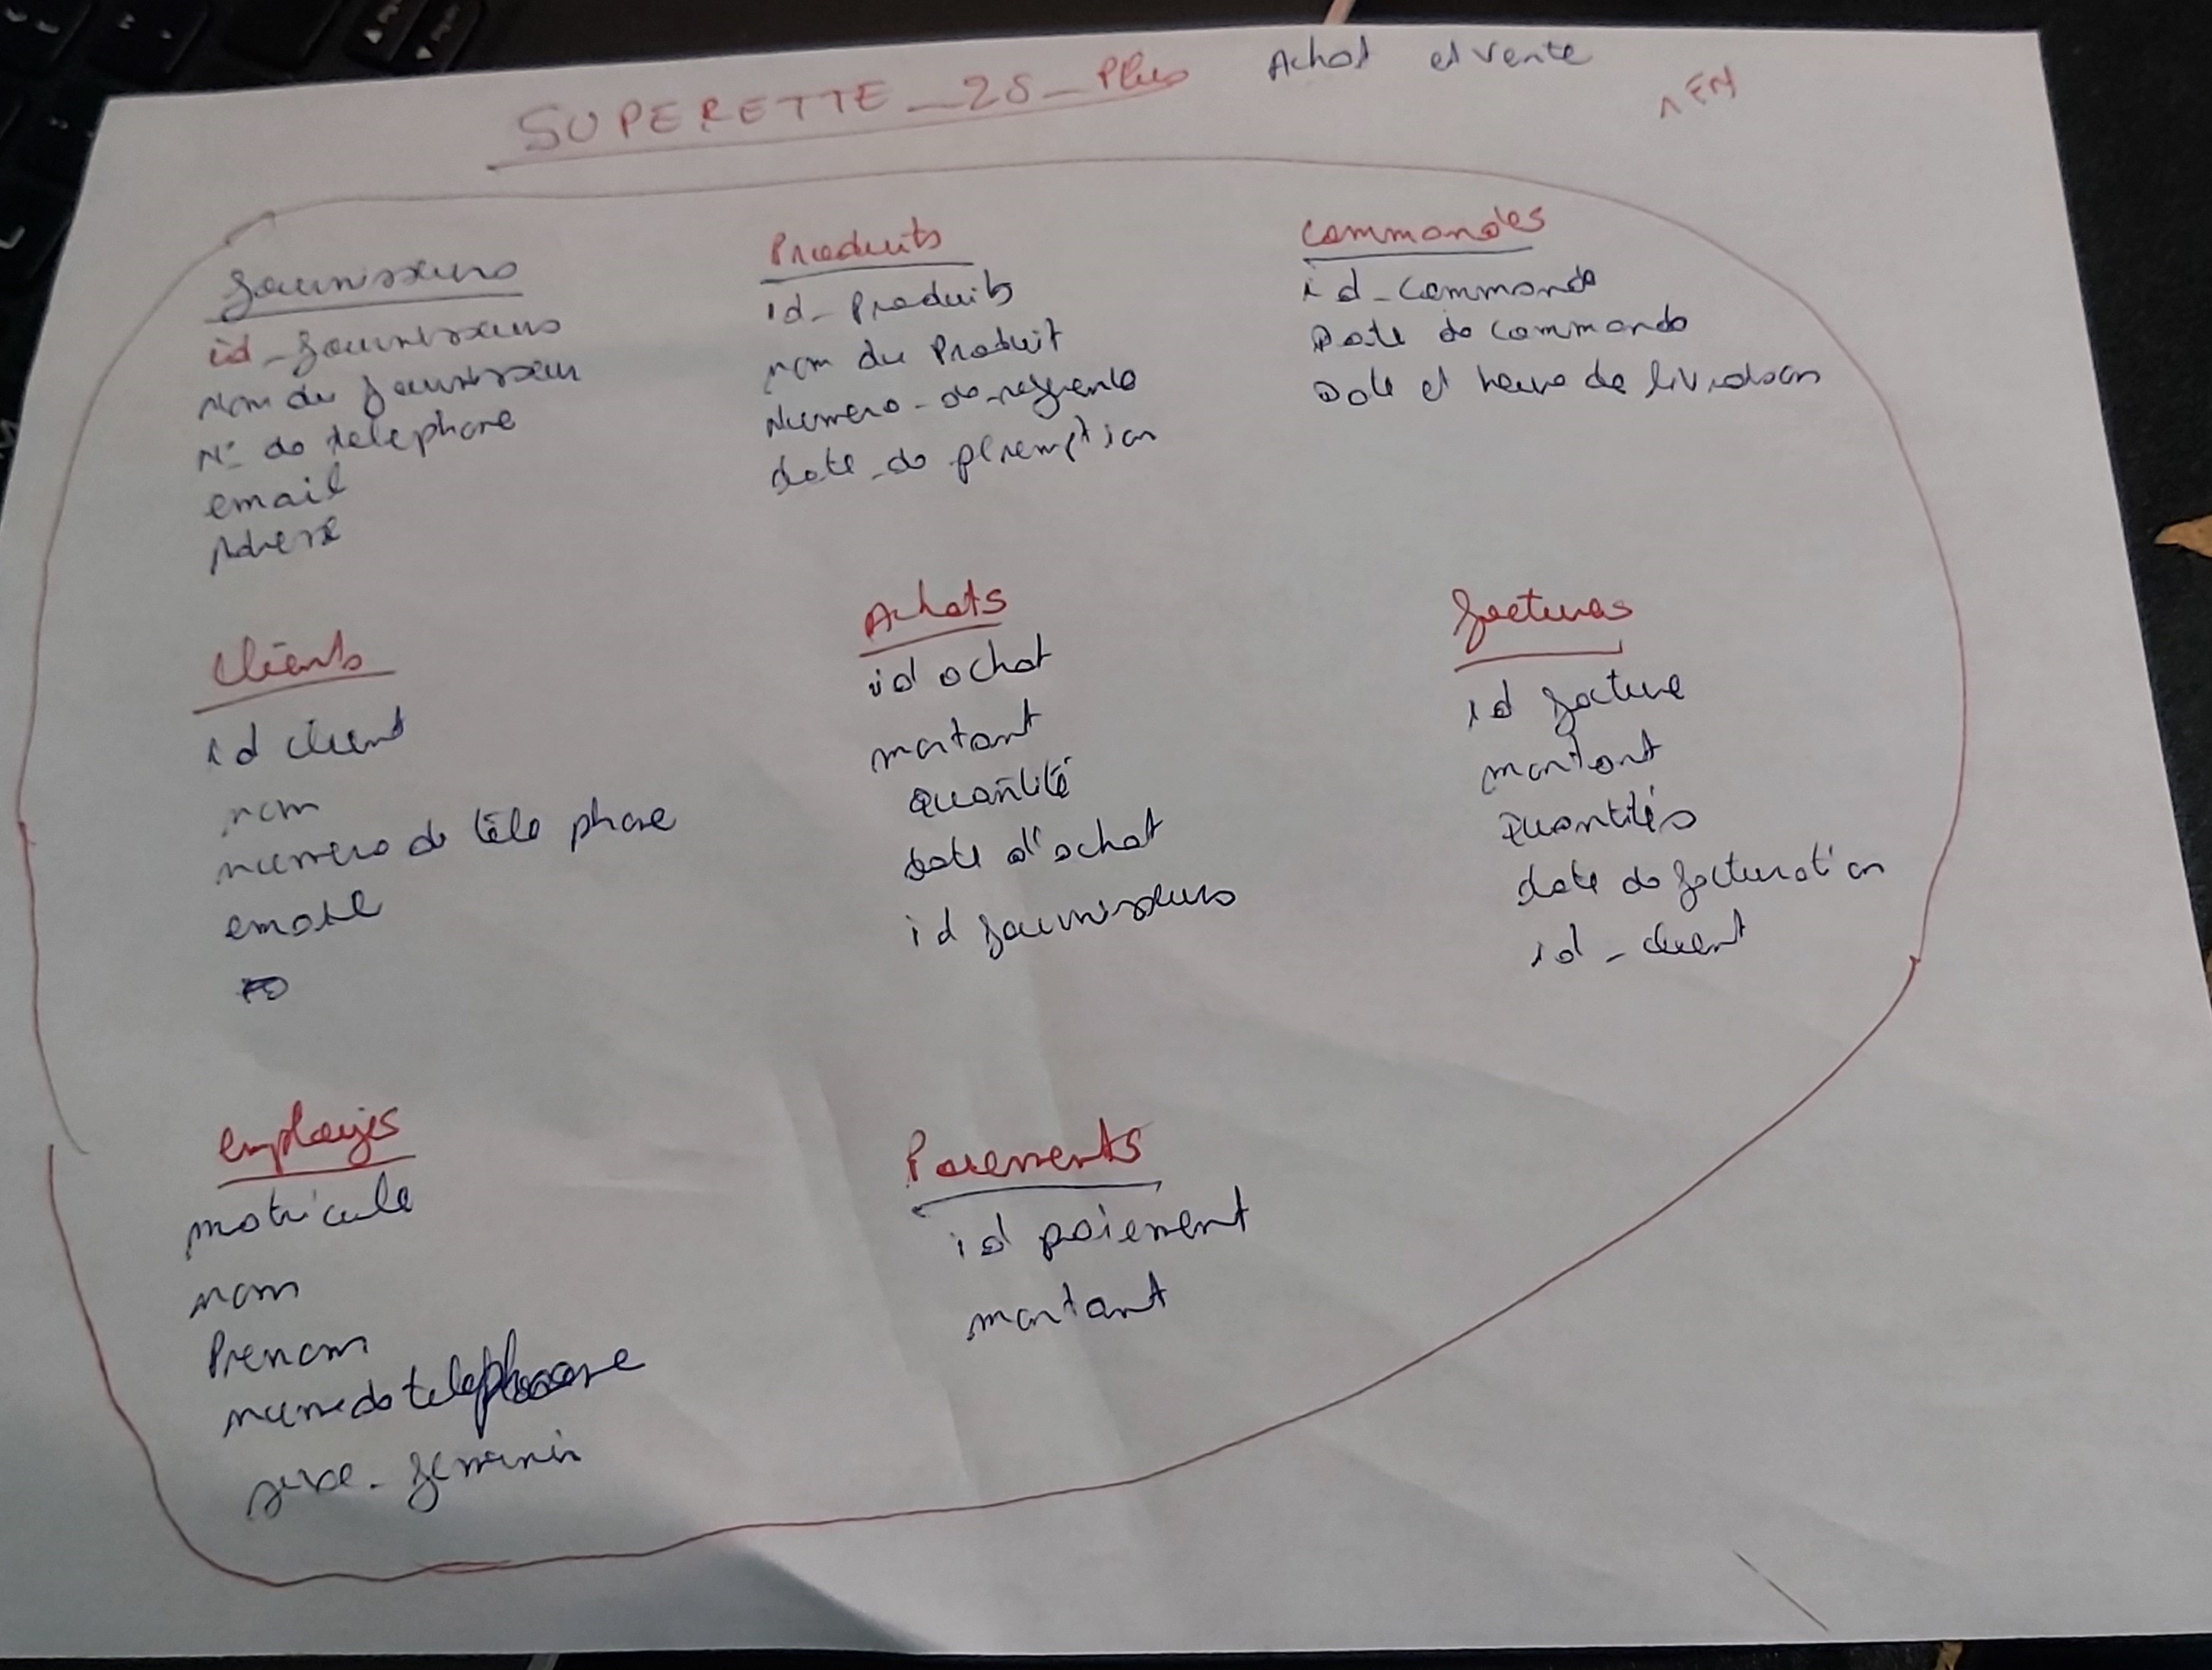 SUPERETTE_2S_Plus Achat et vente
1 FN
fournisseurs
id_fournisseurs
Nom du fournisseur
N° de telephone
email
Adresse
Produits
id_Produits
nom du Produit
Numero_de_reference
date_de peremption
Commandes
id_commande
Date de commande
Date et heure de livraison
Clients
id client
nom
numero de téléphone
email
Achats
id achat
montant
Quantité
Date d'achat
id fournisseurs
factures
id facture
montant
Quantités
date de facturation
id_client
employés
matricule
nom
Prenom
telephone
sexe_feminin
Paiements
id paiement
montant